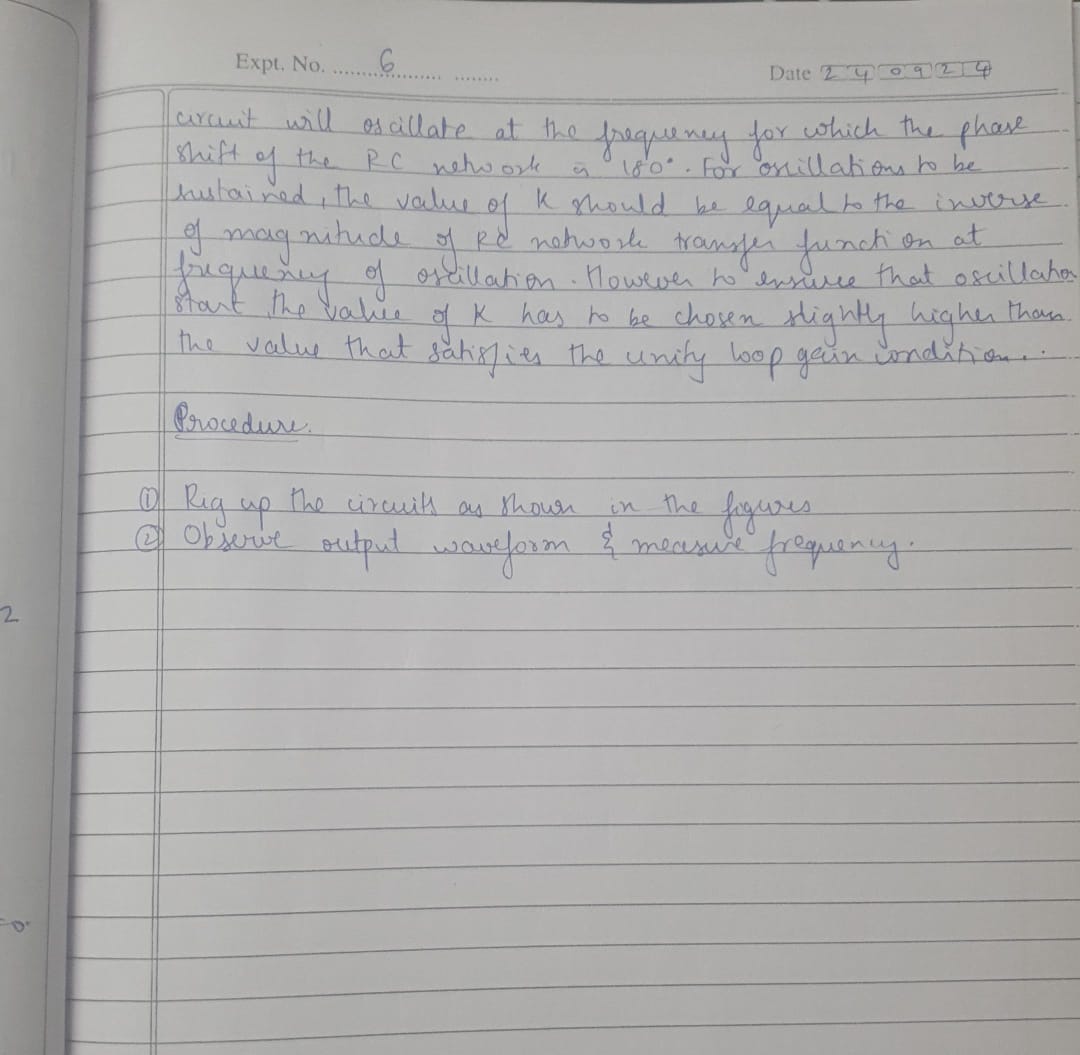 Expt. No. 6
Date 240924
circuit will oscillate at the frequency for which the phase
shift of the RC network is 180°. For oscillations to be
sustained, the value of K should be equal to the inverse
of magnitude of RC network transfer function at
frequency of oscillation. However to ensure that oscillation
start the value of K has to be chosen slightly higher than
the value that satisfies the unity loop gain condition.
Procedure.
① Rig up the circuits as shown in the figures
② Observe output waveform & measure frequency.
2
=0.